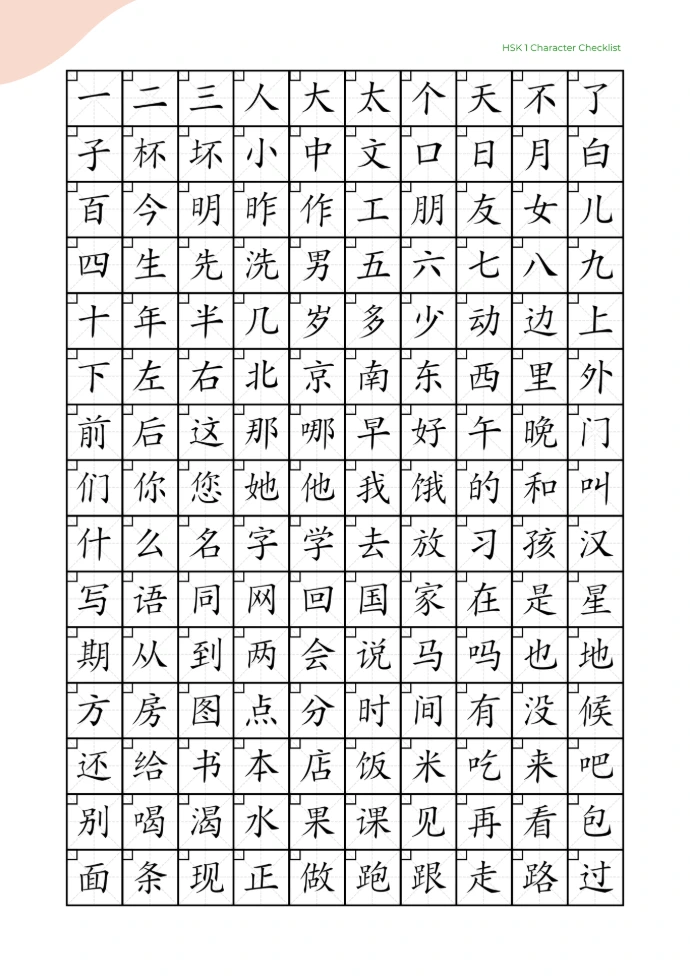 HSK 1 Character Checklist
一 二 三 人 大 太 个 天 不 了
子 杯 坏 小 中 文 口 日 月 白
百 今 明 昨 作 工 朋 友 女 儿
四 生 先 洗 男 五 六 七 八 九
十 年 半 几 岁 多 少 动 边 上
下 左 右 北 京 南 东 西 里 外
前 后 这 那 哪 早 好 午 晚 门
们 你 您 她 他 我 饿 的 和 叫
什 么 名 字 学 去 放 习 孩 汉
写 语 同 网 回 国 家 在 是 星
期 从 到 两 会 说 马 吗 也 地
方 房 图 点 分 时 间 有 没 候
还 给 书 本 店 饭 米 吃 来 吧
别 喝 渴 水 果 课 见 再 看 包
面 条 现 正 做 跑 跟 走 路 过